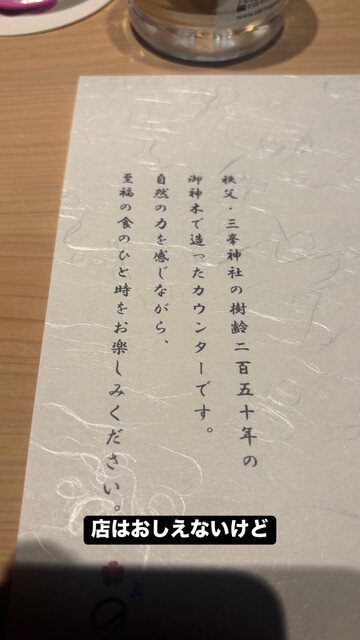 秩父・三峯神社の樹齢二百五十年の
御神木で造ったカウンターです。
自然の力を感じながら、
至福の食のひと時をお楽しみください。
店はおしえないけど